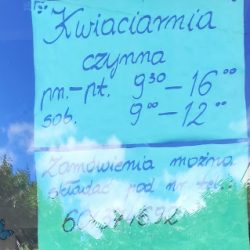 Kwiaciarnia
czynna
pn.-pt. 9³⁰ - 16⁰⁰
sob. 9⁰⁰ - 12⁰⁰
Zamówienia można
składać pod nr tel.